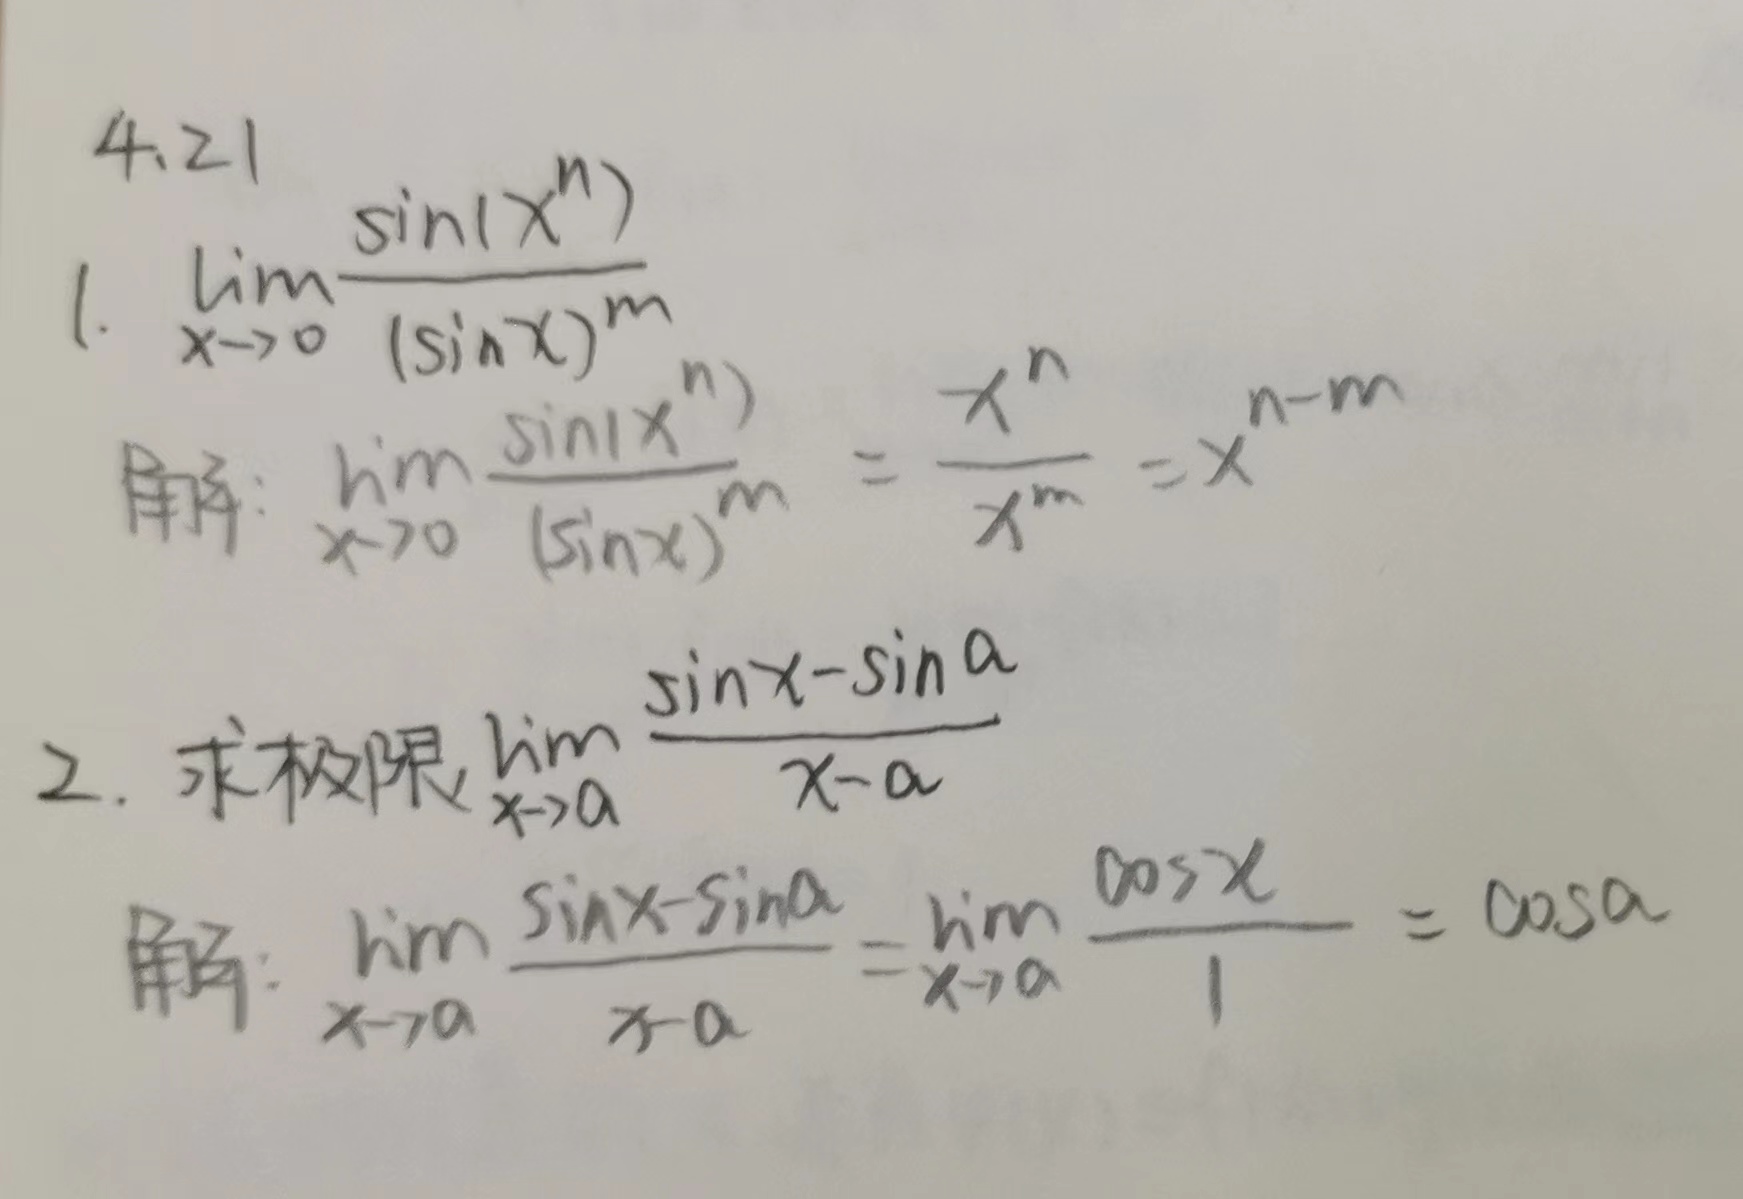 4.21
1. lim x→0 sin(xⁿ) / (sinx)ᵐ
解: lim x→0 sin(xⁿ) / (sinx)ᵐ = xⁿ / xᵐ = xⁿ⁻ᵐ
2. 求极限 lim x→a sinx-sina / x-a
解: lim x→a sinx-sina / x-a = lim x→a cosx / 1 = cosa